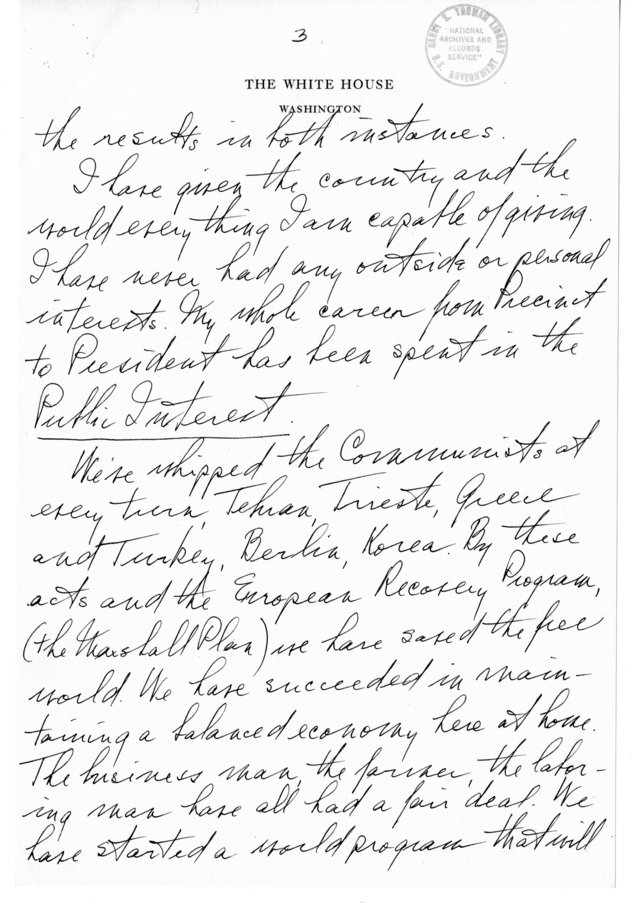 3
HARRY S. TRUMAN LIBRARY
"NATIONAL
ARCHIVES AND
RECORDS
SERVICE"
U.S. GOVERNMENT
THE WHITE HOUSE
WASHINGTON
the results in both instances.
I have given the country and the
world everything I am capable of giving.
I have never had any outside or personal
interests. My whole career from Precinct
to President has been spent in the
Public Interest.
We've whipped the Communists at
every turn, Tehran, Trieste, Greece
and Turkey, Berlin, Korea. By these
acts and the European Recovery Program,
(the Marshall Plan) we have saved the free
world. We have succeeded in main-
taining a balanced economy here at home.
The business man, the farmer, the labor-
ing man have all had a fair deal. We
have started a world program that will